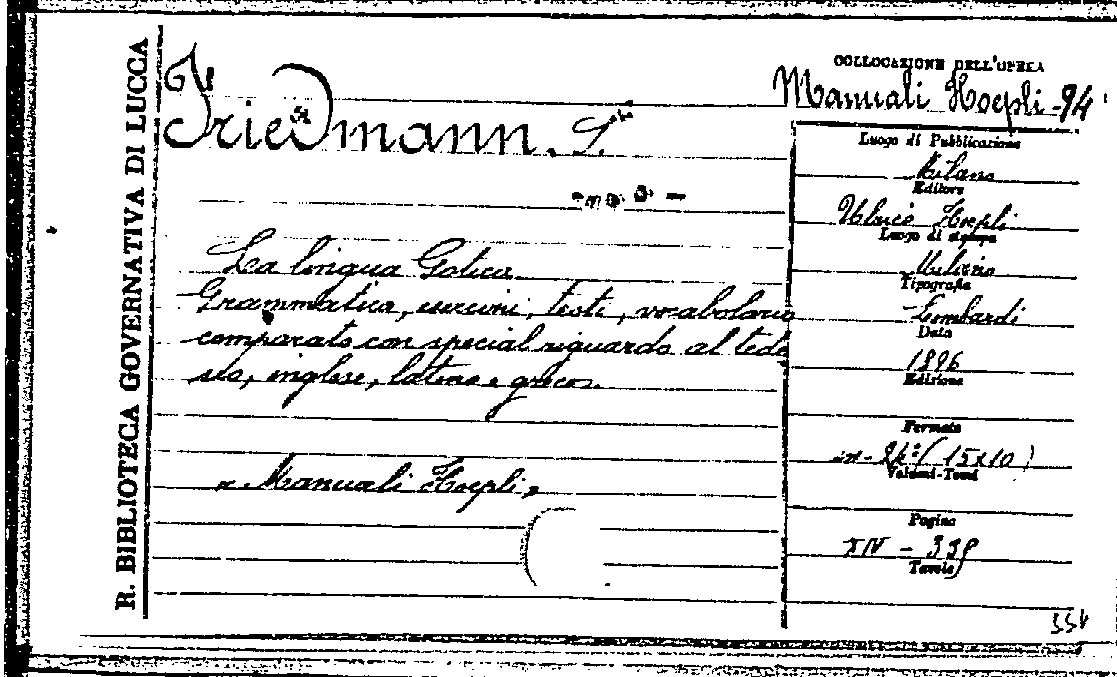 R. BIBLIOTECA GOVERNATIVA DI LUCCA
Friedmann. S.
La lingua Gotica.
Grammatica, esercizi, testi, vocabolario
comparato con special riguardo al tede
sco, inglese, latino e greco.
"Manuali Hoepli"
COLLOCAZIONE DELL'OPERA
Manuali Hoepli - 94
Luogo di Pubblicazione
Milano
Editore
Ulrico Hoepli
Luogo di stampa
Milano
Tipografia
Lombardi
Data
1896
Edizione
Formato
in-24º (15x10)
Volumi-Tomi
Pagine
XVI -
Tavole